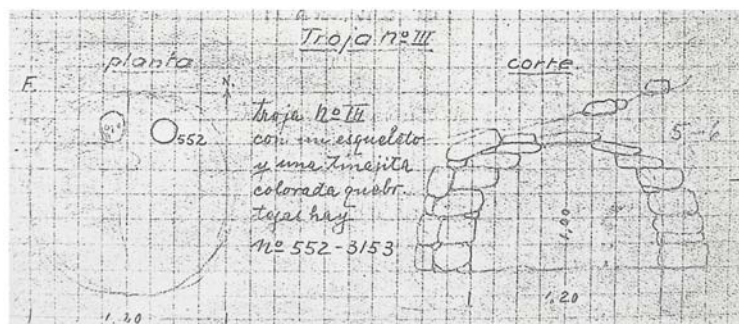 Troja nº III
planta
corte
F.
N
552
Troja Nº III
con un esqueleto
y una tinajita
colorada quebr.
tejas hay
nº 552-3153
5-6
1,00
1,20
1,20